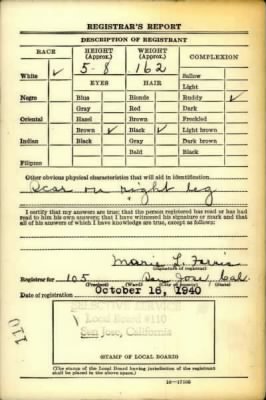 REGISTRAR'S REPORT
DESCRIPTION OF REGISTRANT
RACE HEIGHT (Approx.) WEIGHT (Approx.) COMPLEXION
5-8 162
White ✓ Sallow
EYES HAIR Light
Negro Blue Blonde Ruddy ✓
Gray Red Dark
Oriental Hazel Brown Freckled
Brown ✓ Black ✓ Light brown
Indian Black Gray Dark brown
Bald Black
Filipino
Other obvious physical characteristics that will aid in identification
Scar on right leg
I certify that my answers are true; that the person registered has read or has had
read to him his own answers; that I have witnessed his signature or mark and that
all of his answers of which I have knowledge are true, except as follows:
Marie L.
(Signature of registrar)
Registrar for 105 San Jose, Cal.
(Precinct) (Ward) (City or county) (State)
Date of registration October 16, 1940
SELECTIVE SERVICE
Local Board #110
San Jose, California
110
(STAMP OF LOCAL BOARD)
(The stamp of the Local Board having jurisdiction of the registrant
shall be placed in the above space.)